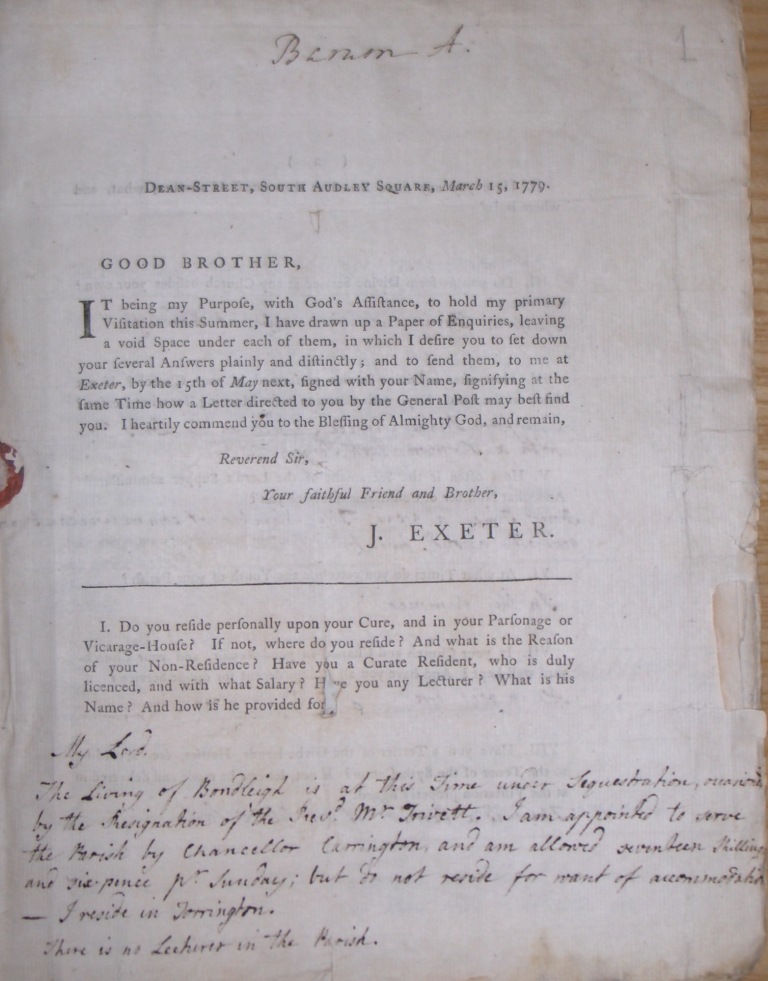 Barum A.
1
DEAN-STREET, SOUTH AUDLEY SQUARE, March 15, 1779.
GOOD BROTHER,
IT being my Purpoſe, with God's Aſſiſtance, to hold my primary
Viſitation this Summer, I have drawn up a Paper of Enquiries, leaving
a void Space under each of them, in which I deſire you to ſet down
your ſeveral Anſwers plainly and diſtinctly; and to ſend them, to me at
Exeter, by the 15th of May next, ſigned with your Name, ſignifying at the
ſame Time how a Letter directed to you by the General Poſt may beſt find
you. I heartily commend you to the Bleſſing of Almighty God, and remain,
Reverend Sir,
Your faithful Friend and Brother,
J. EXETER.
I. Do you reſide perſonally upon your Cure, and in your Parſonage or
Vicarage-Houſe? If not, where do you reſide? And what is the Reaſon
of your Non-Reſidence? Have you a Curate Reſident, who is duly
licenced, and with what Salary? H e you any Lecturer? What is his
Name? And how is he provided for
My Lord.
The Living of Bondleigh is at this Time under Sequestration, occasiond,
by the Resignation of the Revd. Mr Trivett. I am appointed to serve
the Parish by Chancellor Carrington, and am allowed seventeen Shillings
and six-pence pr. Sunday; but do not reside for want of accommodation
— I reside in Torrington.
There is no Lecturer in the Parish.